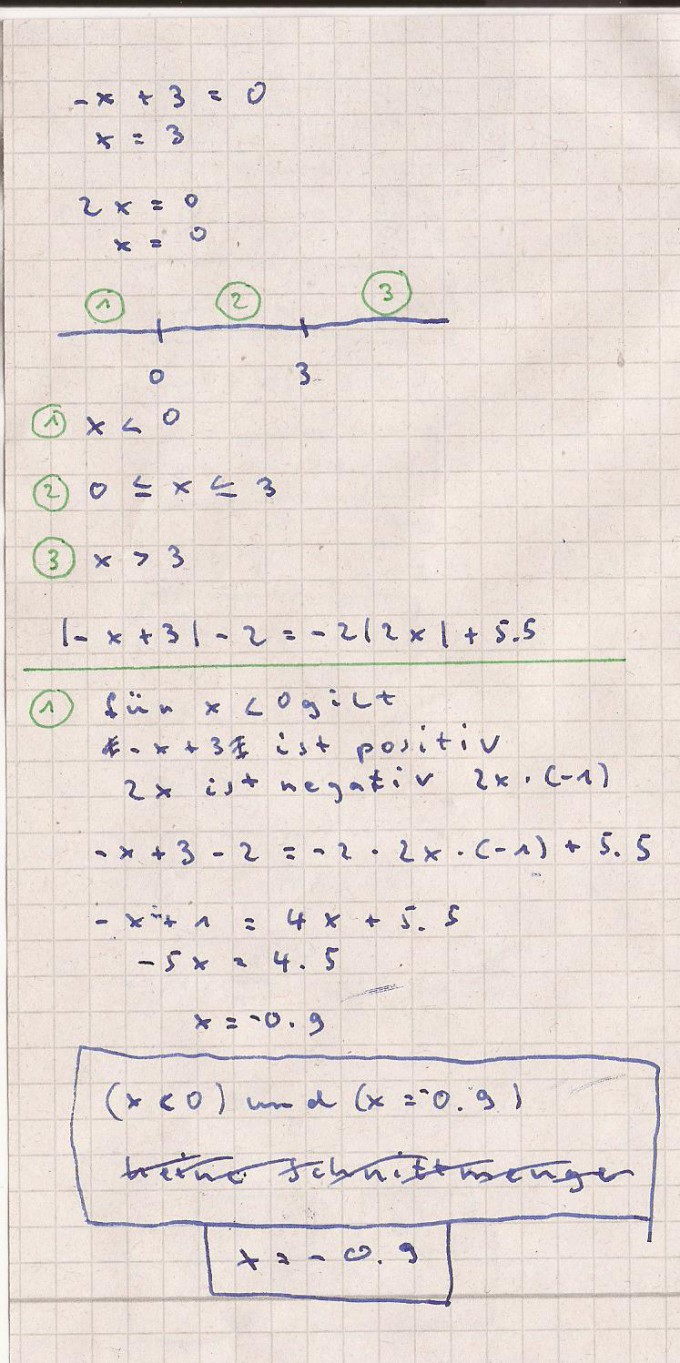 -x + 3 = 0
x = 3
2x = 0
x = 0
① ② ③
0 3
① x < 0
② 0 ≤ x ≤ 3
③ x > 3
|-x+3|-2 = -2|2x| + 5.5
① für x < 0 gilt
-x+3 ist positiv
2x ist negativ 2x·(-1)
-x+3-2 = -2·2x·(-1) + 5.5
-x + 1 = 4x + 5.5
-5x = 4.5
x = -0.9
(x < 0) und (x = -0.9)
keine Schnittmenge
x = -0.9